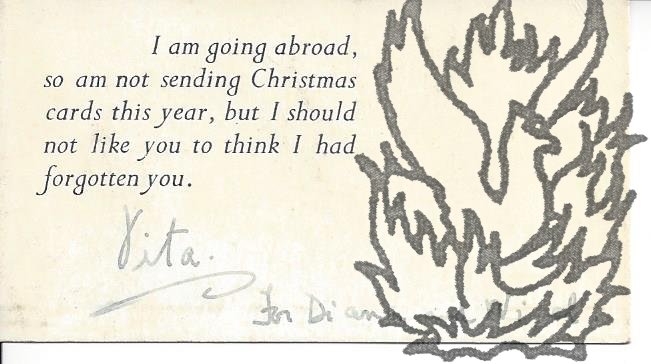 I am going abroad,
so am not sending Christmas
cards this year, but I should
not like you to think I had
forgotten you.
Vita.
For Diana